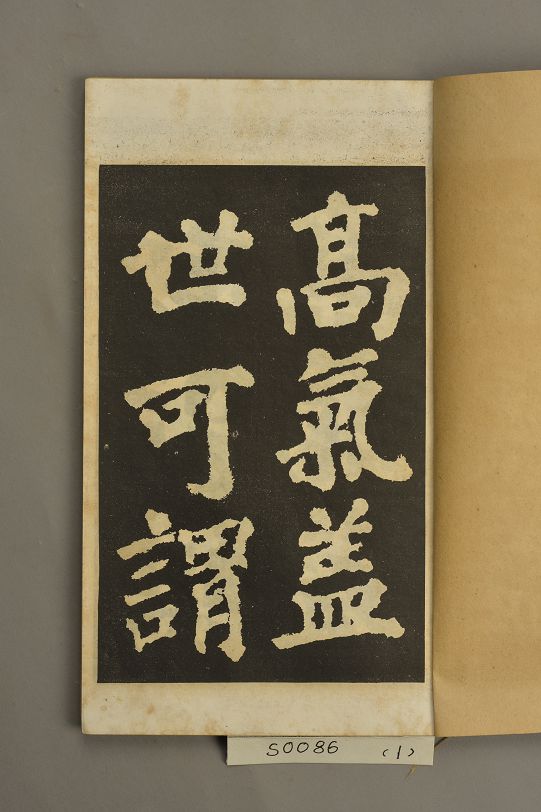 髙氣盖
世可謂
S0086 (1)